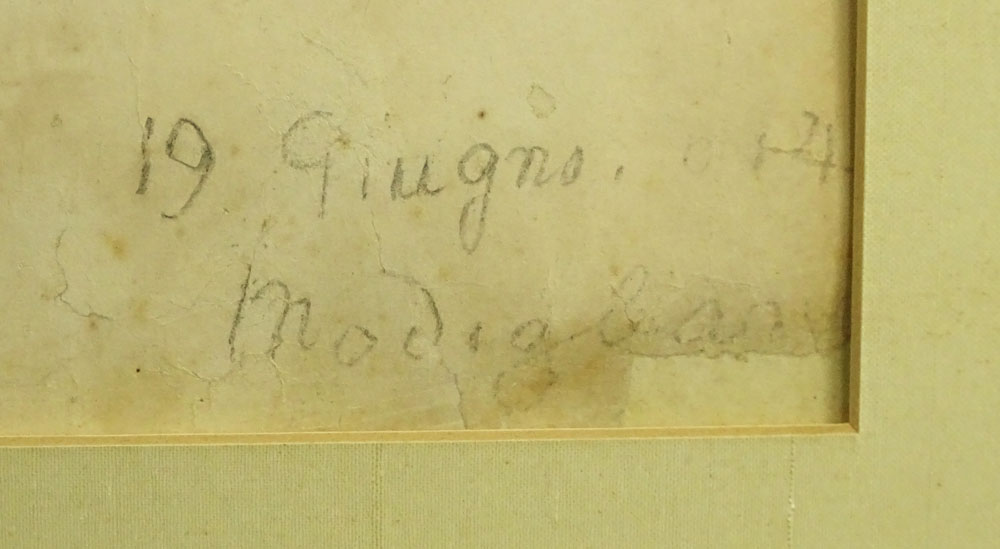 19 Giugno.
Modigliani